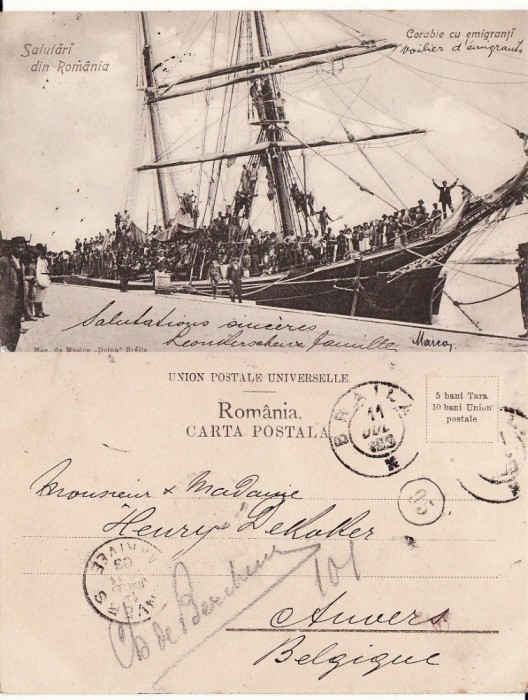 Salutări
din România
Corabie cu emigranți
voilier d'émigrants
Salutations sincères
famille
Mag. de Musica „Doina” Brăila
UNION POSTALE UNIVERSELLE.
România.
CARTA POSTALA
BRAILA
11
5 bani Tara
10 bani Union
postale
Monsieur & Madame
Henry DeKoker
ANVERS
ARRIVÉE
Ch de Berchem
101
Anvers
Belgique